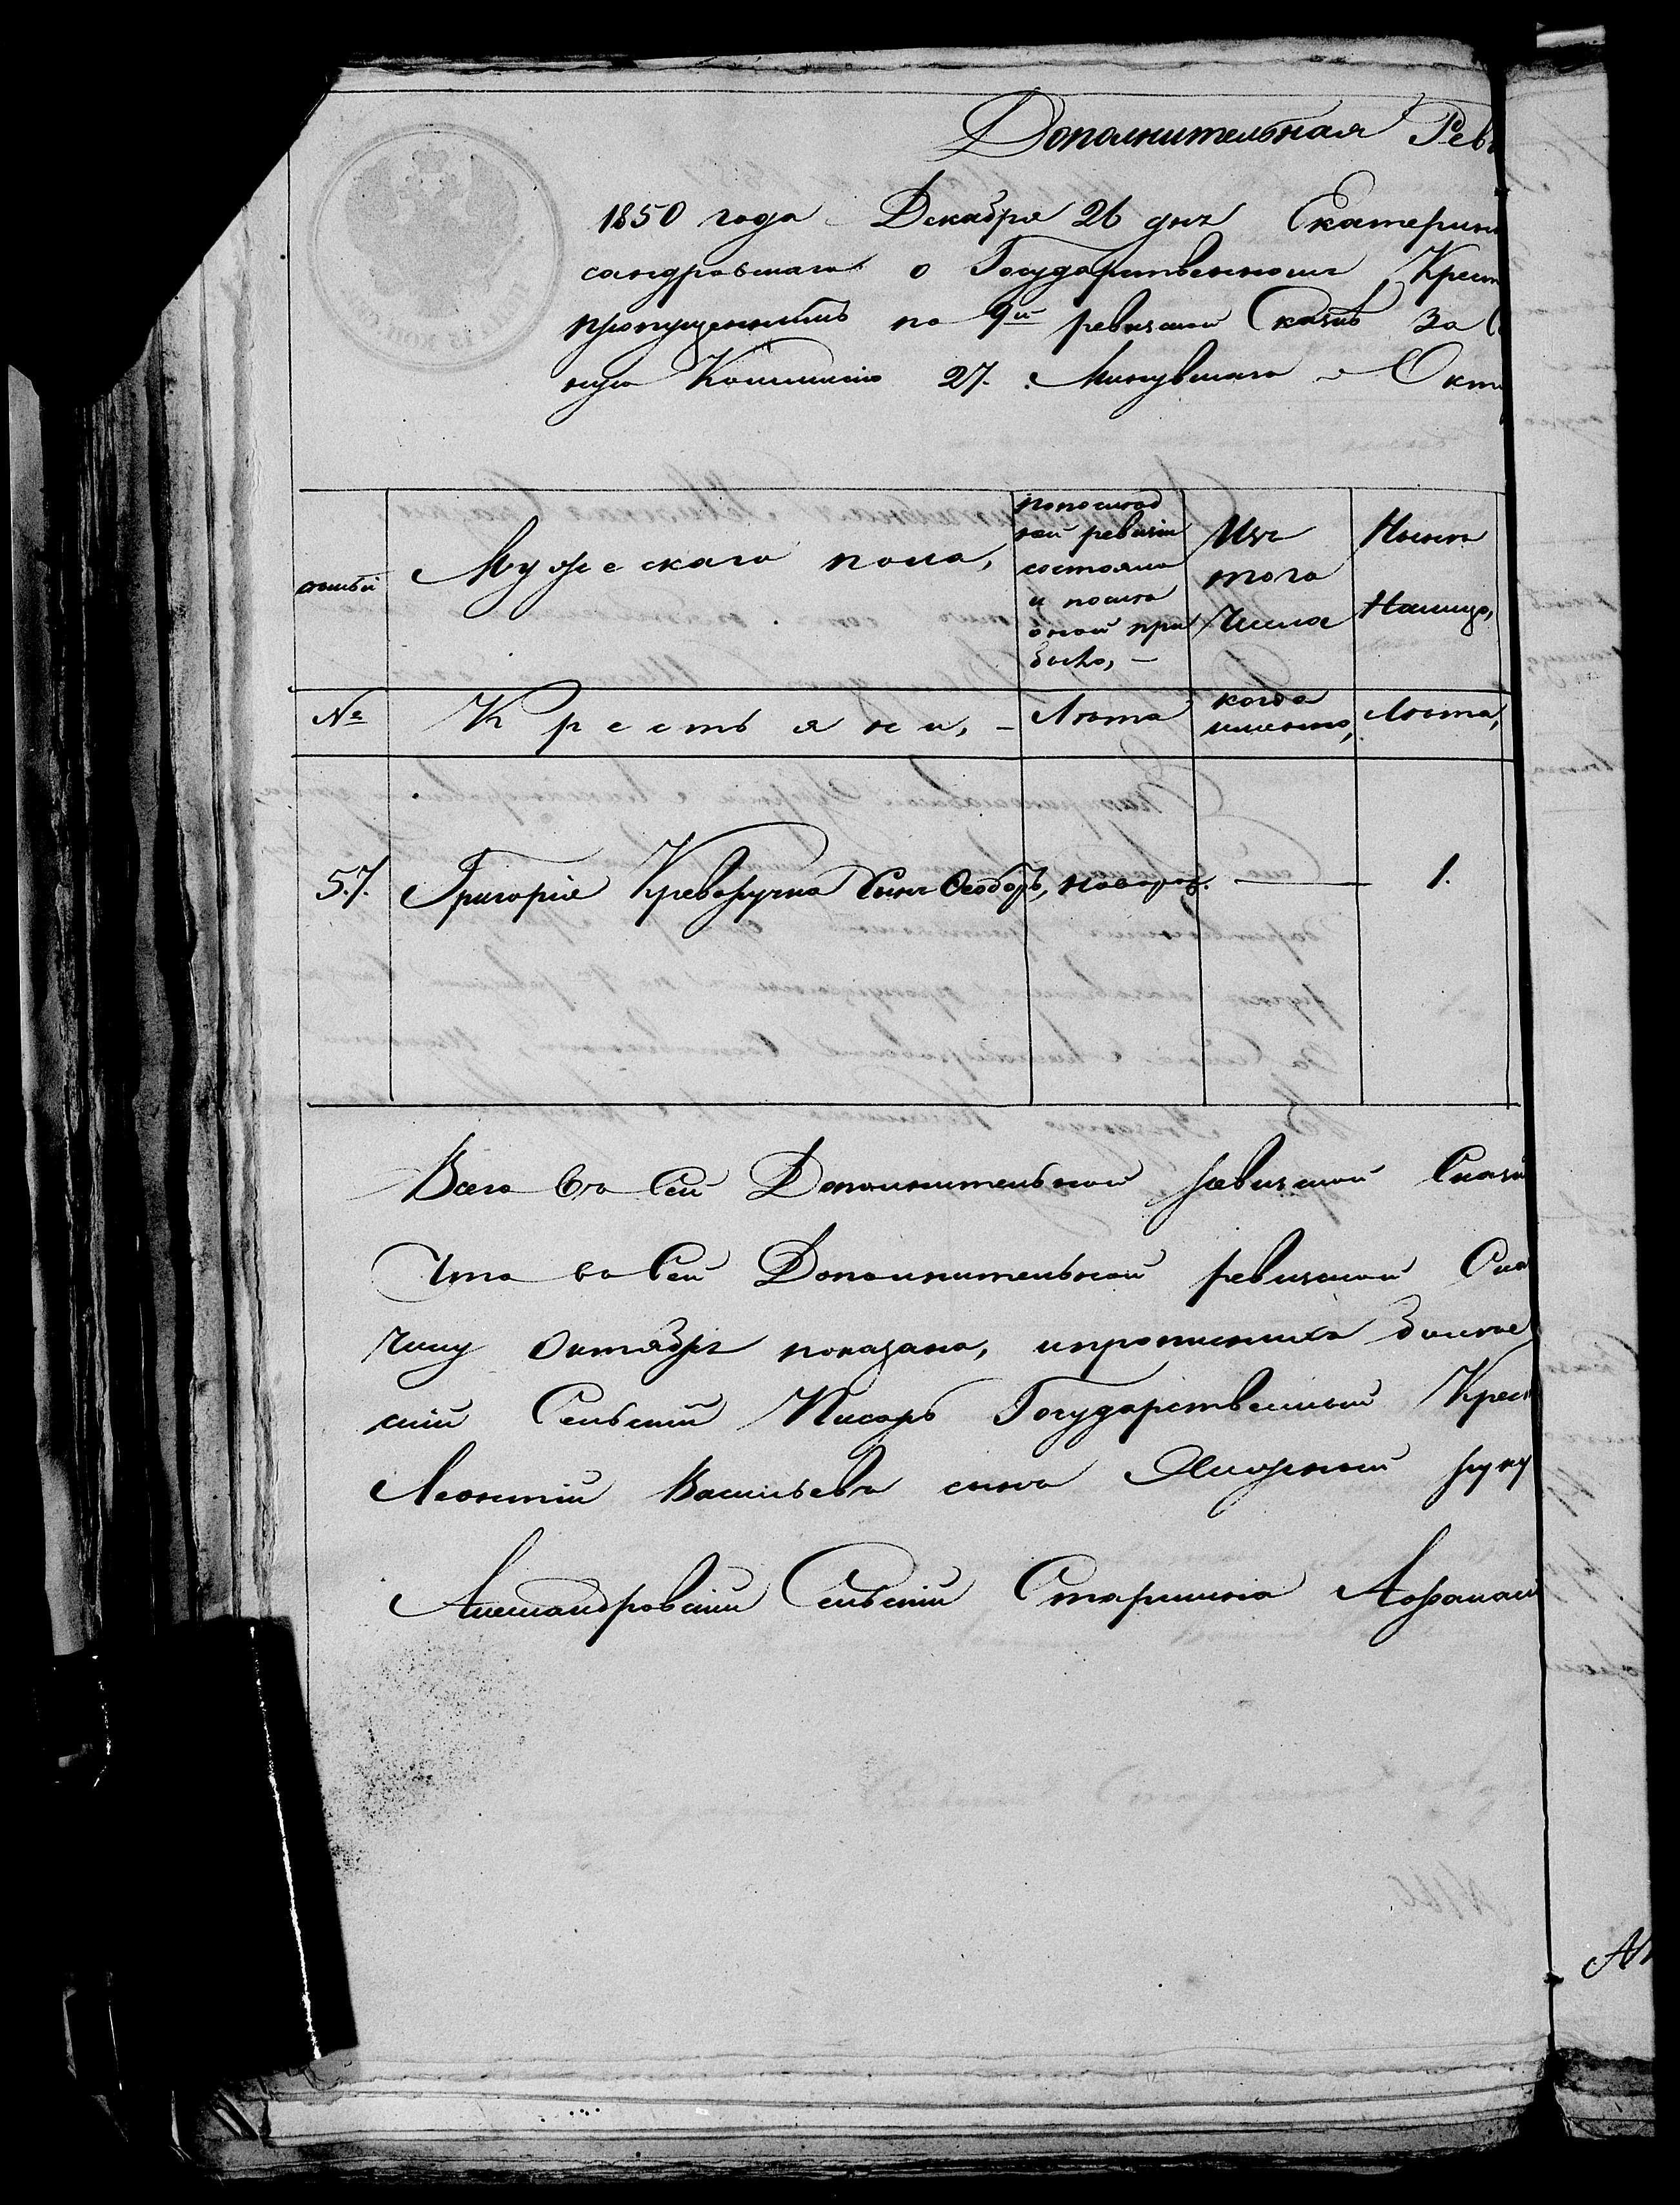 Дополнительная Рев
1850 года Декабря 26 дня Екатерин
сандровскаго о Государственномъ Крест
пропущенномъ по 9й ревизской Сказкѣ за
ную Коммисію 27. Минувшаго Окт
Мужескаго пола,
по послѣд
ней ревизіи
состояло
и послѣ
оной при
было, —
Изъ
того
Числа
Нынѣ
Налицо,
№
Крестьяни, —
Лѣта
когда
именно,
Лѣта,
57.
Григорія Криворучка Сынъ Ѳеодоръ, новорож. — 1.
Всего въ Сей Дополнительной ревизской Сказк
Что въ Сей Дополнительной ревизской Ска
Числу Октября показано, и прописныхъ болѣе
скій Сельскій Писарь Государственный Крест
Леонтій Васильевъ сынъ руку
Александровскій Сельскій Старшина Афанасі